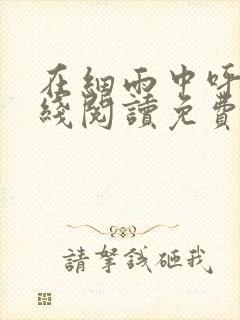 在細雨中呼
綫閱讀免費
請拏錢砸我